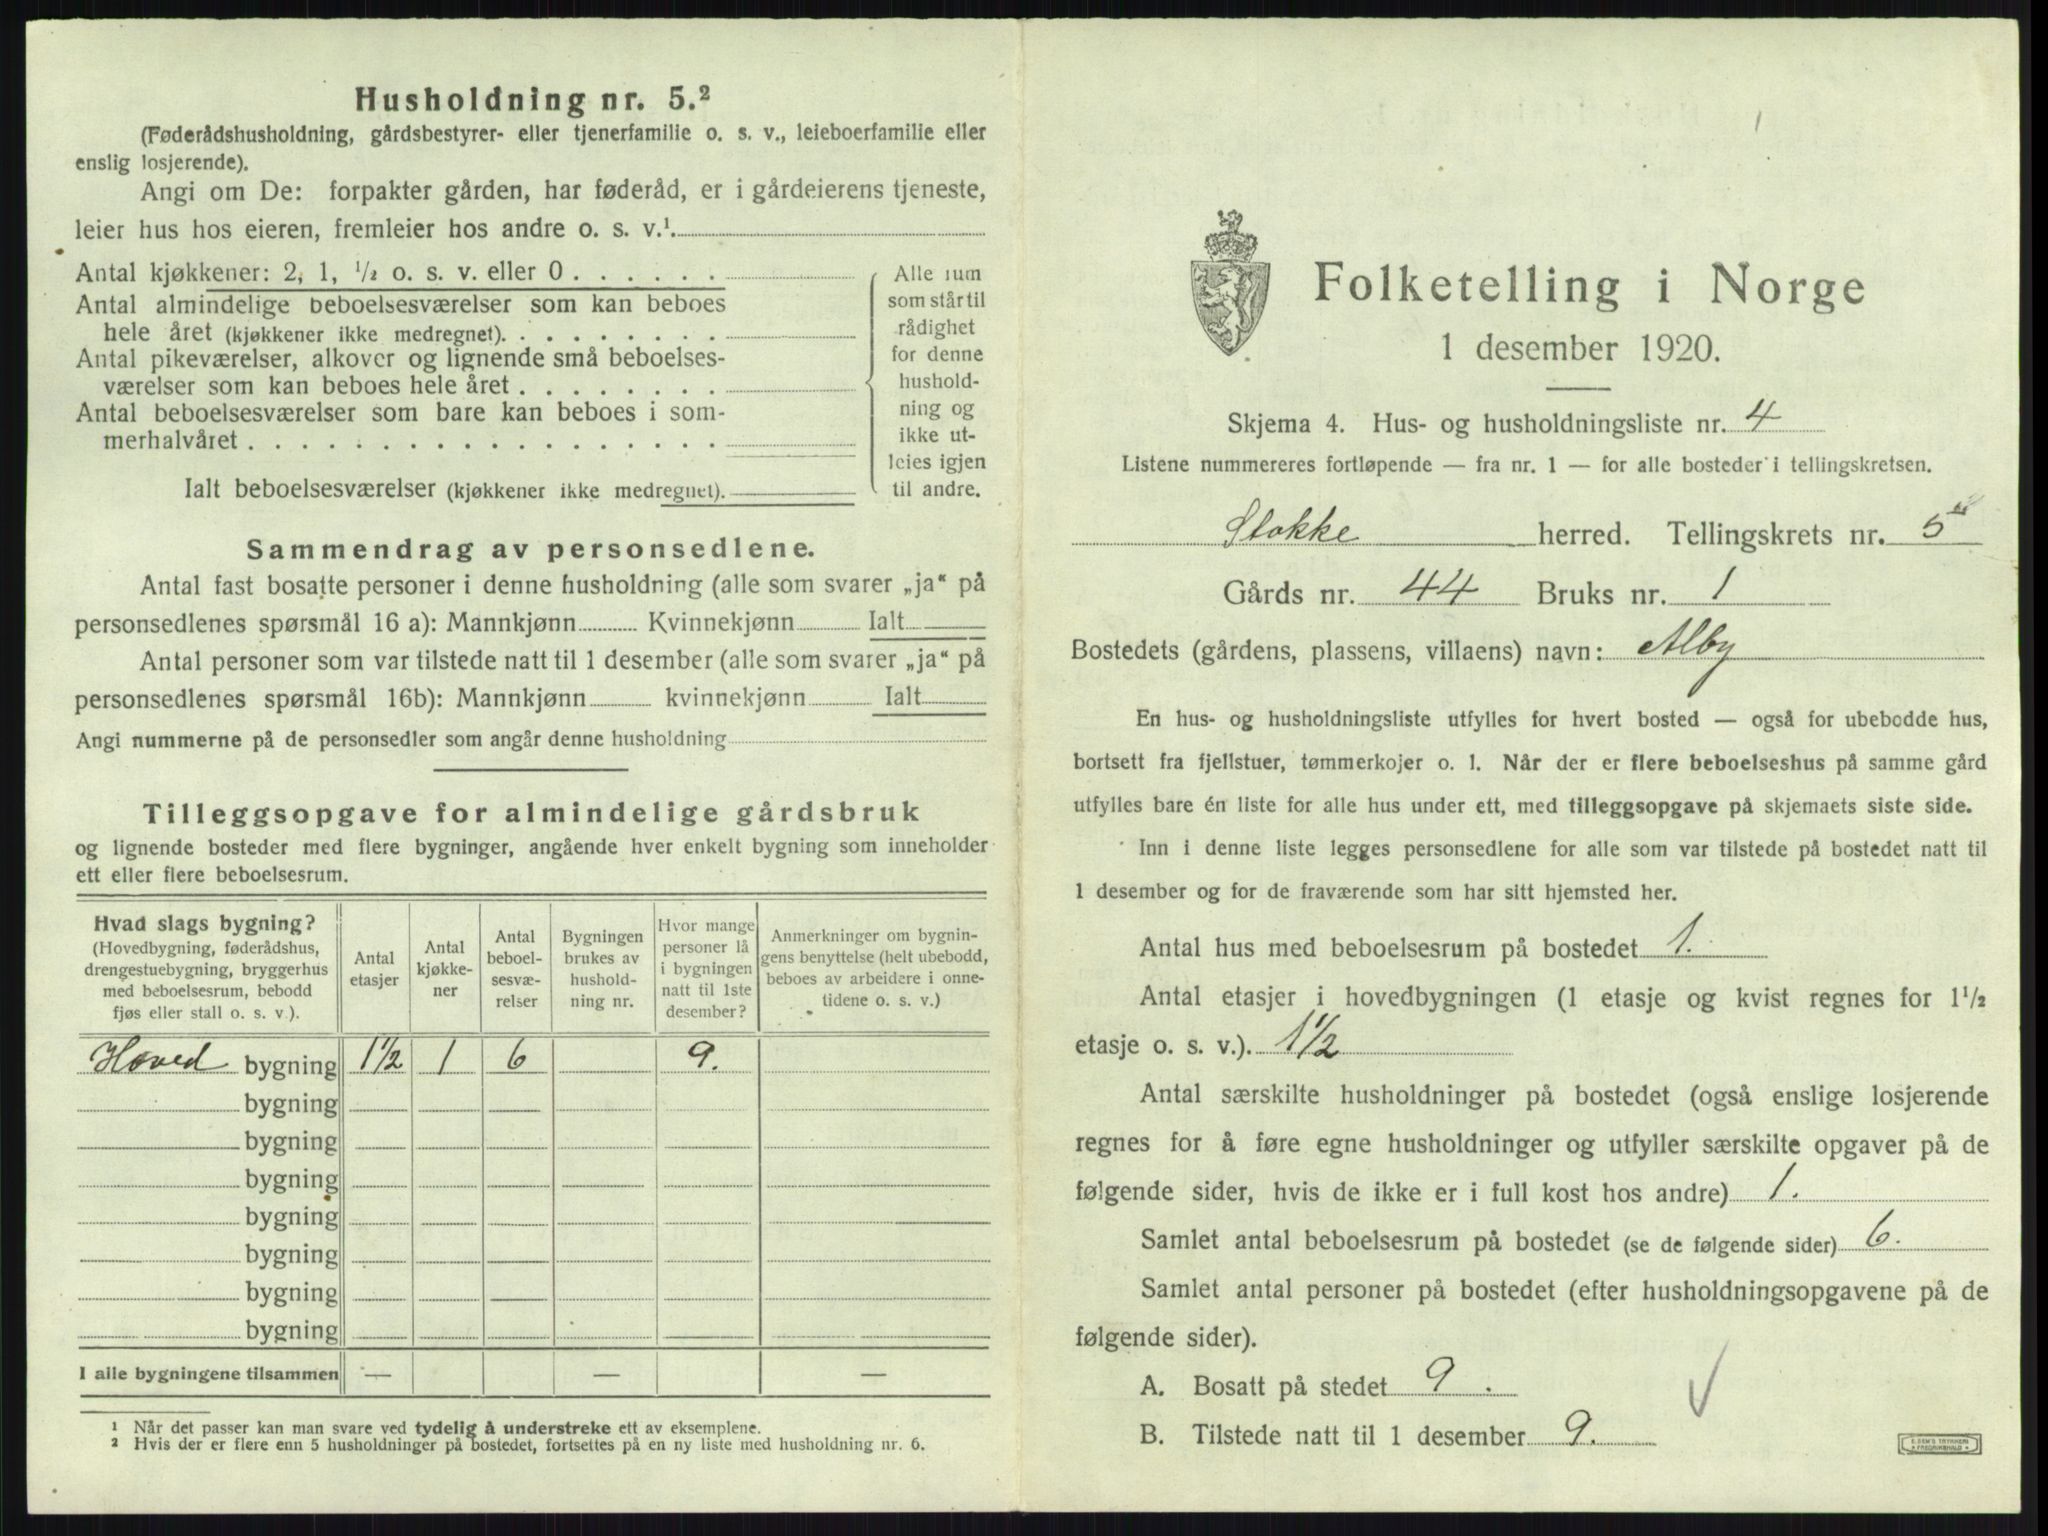 Husholdning nr. 5.²
(Føderådshusholdning, gårdsbestyrer- eller tjenerfamilie o. s. v., leieboerfamilie eller
enslig losjerende).
Angi om De: forpakter gården, har føderåd, er i gårdeierens tjeneste,
leier hus hos eieren, fremleier hos andre o. s. v.¹
Antal kjøkkener: 2, 1, ½ o. s. v. eller 0 . . . . . .
Antal almindelige beboelsesværelser som kan beboes
hele året (kjøkkener ikke medregnet). . . . . . . . .
Antal pikeværelser, alkover og lignende små beboelses-
værelser som kan beboes hele året . . . . . . . .
Antal beboelsesværelser som bare kan beboes i som-
merhalvåret . . . . . . . . . . . . . . . . . .
Ialt beboelsesværelser (kjøkkener ikke medregnet).
Alle rum
som står til
rådighet
for denne
hushold-
ning og
ikke ut-
leies igjen
til andre.
Sammendrag av personsedlene.
Antal fast bosatte personer i denne husholdning (alle som svarer „ja“ på
personsedlenes spørsmål 16 a): Mannkjønn Kvinnekjønn Ialt
Antal personer som var tilstede natt til 1 desember (alle som svarer „ja“ på
personsedlenes spørsmål 16b): Mannkjønn kvinnekjønn Ialt
Angi nummerne på de personsedler som angår denne husholdning
Tilleggsopgave for almindelige gårdsbruk
og lignende bosteder med flere bygninger, angående hver enkelt bygning som inneholder
ett eller flere beboelsesrum.
Hvad slags bygning?
(Hovedbygning, føderådshus,
drengestuebygning, bryggerhus
med beboelsesrum, bebodd
fjøs eller stall o. s. v.).
Antal
etasjer
Antal
kjøkke-
ner
Antal
beboel-
sesvæ-
relser
Bygningen
brukes av
hushold-
ning nr.
Hvor mange
personer lå
i bygningen
natt til 1ste
desember?
Anmerkninger om bygnin-
gens benyttelse (helt ubebodd,
beboes av arbeidere i onne-
tidene o. s. v.)
Hoved bygning 1½ 1 6 9.
bygning
bygning
bygning
bygning
bygning
bygning
bygning
I alle bygningene tilsammen — — —
¹ Når det passer kan man svare ved tydelig å understreke ett av eksemplene.
² Hvis der er flere enn 5 husholdninger på bostedet, fortsettes på en ny liste med husholdning nr. 6.
Folketelling i Norge
1 desember 1920.
Skjema 4. Hus- og husholdningsliste nr. 4
Listene nummereres fortløpende — fra nr. 1 — for alle bosteder i tellingskretsen.
Stokke herred. Tellingskrets nr. 5
Gårds nr. 44 Bruks nr. 1
Bostedets (gårdens, plassens, villaens) navn: Alby
En hus- og husholdningsliste utfylles for hvert bosted — også for ubebodde hus,
bortsett fra fjellstuer, tømmerkojer o. l. Når der er flere beboelseshus på samme gård
utfylles bare én liste for alle hus under ett, med tilleggsopgave på skjemaets siste side.
Inn i denne liste legges personsedlene for alle som var tilstede på bostedet natt til
1 desember og for de fraværende som har sitt hjemsted her.
Antal hus med beboelsesrum på bostedet 1.
Antal etasjer i hovedbygningen (1 etasje og kvist regnes for 1½
etasje o. s. v.). 1½
Antal særskilte husholdninger på bostedet (også enslige losjerende
regnes for å føre egne husholdninger og utfyller særskilte opgaver på de
følgende sider, hvis de ikke er i full kost hos andre) 1.
Samlet antal beboelsesrum på bostedet (se de følgende sider) 6.
Samlet antal personer på bostedet (efter husholdningsopgavene på de
følgende sider).
A. Bosatt på stedet 9.
B. Tilstede natt til 1 desember 9.
E. SEM'S TRYKKERI
FREDRIKSHALD